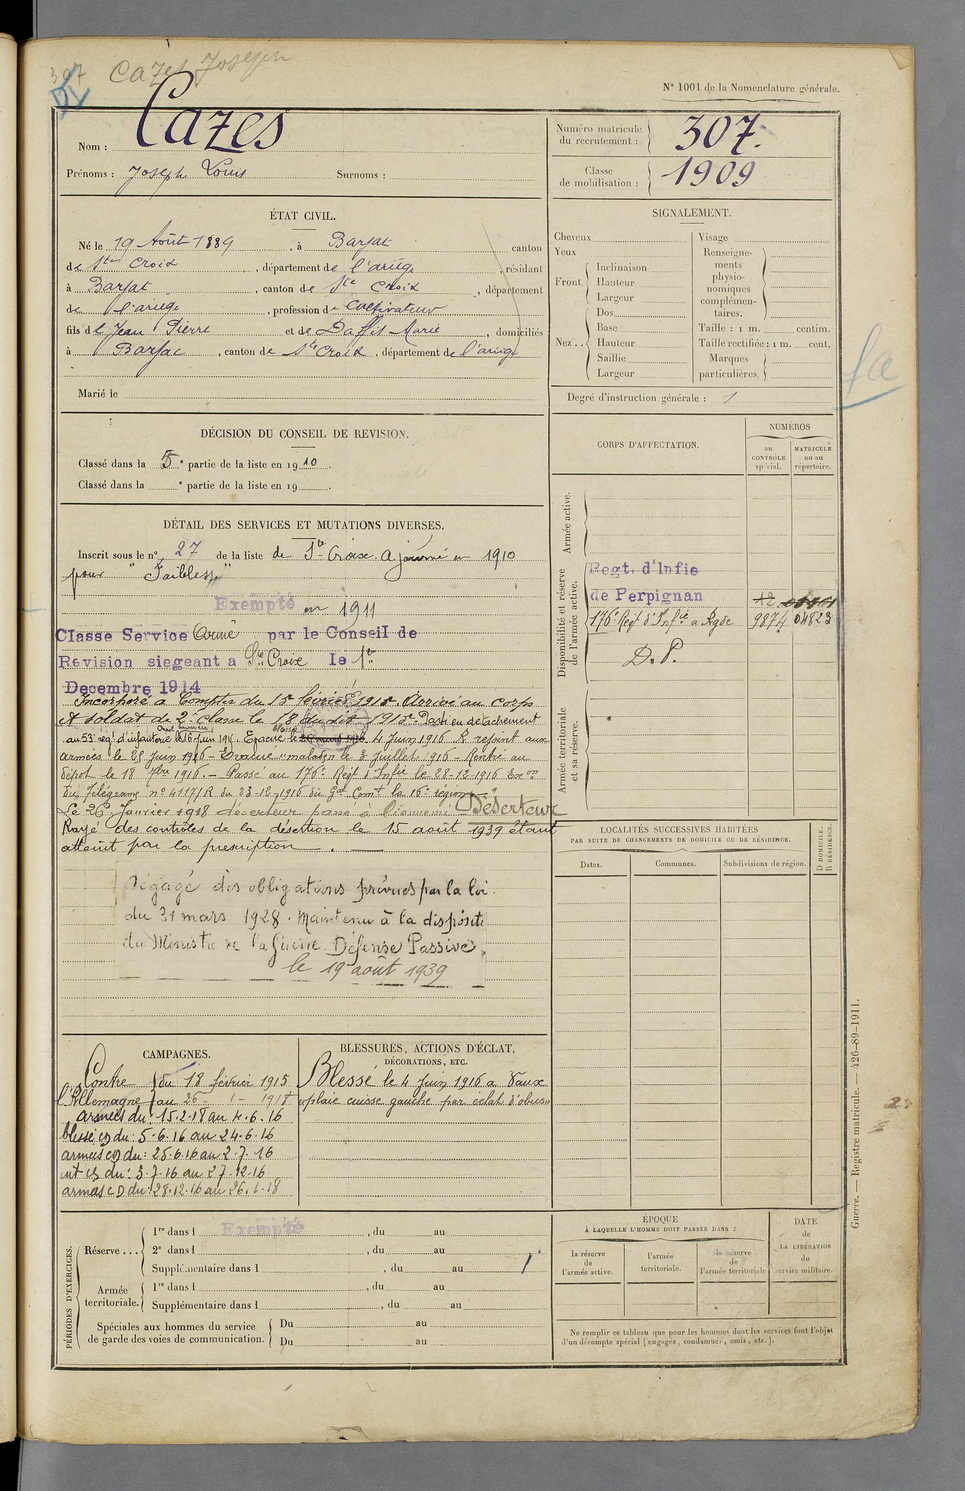 307 Cazes Joseph
N° 1001 de la Nomenclature générale.
Nom : Cazes
Prénoms : Joseph Louis Surnoms :
Numéro matricule du recrutement : 307.
Classe de mobilisation : 1909
ÉTAT CIVIL.
Né le 19 Août 1889, à Barjat canton
de Ste Croix, département de l'ariège, résidant
à Barjat, canton de Ste Croix, département
de l'ariège, profession de Cultivateur
fils de Jean Pierre et de Daffis Marie, domiciliés
à Barjac, canton de Ste Croix, département de l'ariège
Marié le
SIGNALEMENT.
Cheveux
Yeux
Front. Inclinaison
Hauteur
Largeur
Nez.. Dos
Base
Hauteur
Saillie
Largeur
Visage
Renseignements physionomiques complémentaires.
Taille : 1 m. centim.
Taille rectifiée : 1 m. cent.
Marques particulières.
Degré d'instruction générale : 1
DÉCISION DU CONSEIL DE REVISION.
Classé dans la 5e partie de la liste en 1910.
Classé dans la e partie de la liste en 19
CORPS D'AFFECTATION.
NUMÉROS
au CONTRÔLE spécial.
MATRICULE ou au répertoire.
Armée active.
Disponibilité et réserve de l'armée active.
Regt. d'Infie
de Perpignan
176e Regt d'Infie a Agde 9874 04823
D.P.
Armée territoriale et sa réserve.
DÉTAIL DES SERVICES ET MUTATIONS DIVERSES.
Inscrit sous le n° 27 de la liste de Ste Croix. Ajourné en 1910
pour "Faiblesse"
Exempté en 1911
Classe Service Armé par le Conseil de
Revision siegeant a Ste Croix le 1er
Decembre 1914
Incorporé à Compter du 15 février 1915. Arrivé au corps
et soldat de 2e classe le 18 du dit 1915. Passé en détachement
au 53e rég. d'infanterie le 16 Juin 1915. Evacué blessé le 4 Juin 1916 R rejoint aux
armées le 25 Juin 1916 - Evacué "malade" le 3 Juillet 1916 - Rentré au
dépot le 18 7bre 1916. - Passé au 176e Regt d'Infie le 28-12-1916 Exon
du Télégrame n° 4117/R du 23-12-1916 du Gal Comt la 16e région.
Le 26 Janvier 1918 déserteur passé à l'ennemi Déserteur
Rayé des contrôles de la désertion le 15 août 1939 étant
atteint par la prescription.
Dégagé des obligations prévues par la loi
du 31 mars 1928. Maintenu à la disposit
du Ministre de la Guerre Défense Passive.
le 19 août 1939
LOCALITÉS SUCCESSIVES HABITÉES
PAR SUITE DE CHANGEMENTS DE DOMICILE OU DE RÉSIDENCE.
Dates.
Communes.
Subdivisions de région.
D DOMICILE. R RÉSIDENCE.
CAMPAGNES.
Contre du 18 février 1915
l'Allemagne au 26 - 1 - 1918
armées du : 15.2.15 au 4.6.16
blessé CD du : 5.6.16 au 24.6.16
armées CD du : 25.6.16 au 2.7.16
int CD du : 3.7.16 au 27.12.16
armées CD du : 28.12.16 au 26.1.18
BLESSURES, ACTIONS D'ÉCLAT,
DÉCORATIONS, ETC.
Blessé le 4 Juin 1916 a Vaux
"plaie cuisse gauche par eclat d'obus"
PÉRIODES D'EXERCICES.
Réserve ... 1re dans l Exempté, du au
2e dans l , du au
Supplémentaire dans l , du au
Armée territoriale. 1re dans l , du au
Supplémentaire dans l , du au
Spéciales aux hommes du service de garde des voies de communication. Du au
Du au
ÉPOQUE
À LAQUELLE L'HOMME DOIT PASSER DANS :
la réserve de l'armée active.
l'armée territoriale.
la réserve de l'armée territoriale
DATE de LA LIBÉRATION du service militaire.
Ne remplir ce tableau que pour les hommes dont les services font l'objet
d'un décompte spécial (engagés, condamnés, omis, etc.).
Guerre. — Registre matricule. — 426-89-1911.